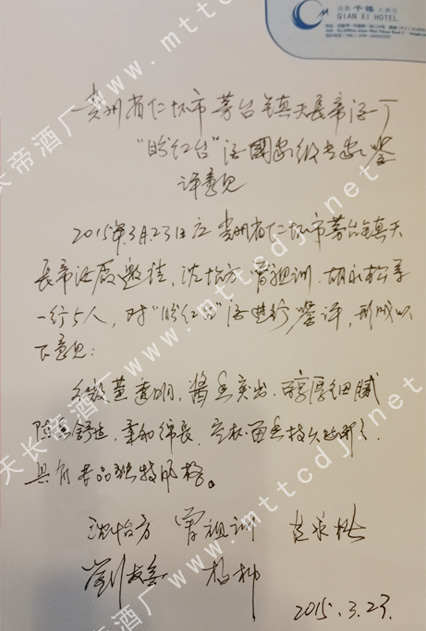 千禧大酒店
QIAN XI HOTEL
贵州省仁怀市茅台镇天长帝酒厂
“盼红台”酒国家级专家鉴
评意见
2015年3月23日应贵州省仁怀市茅台镇天
长帝酒厂邀请，沈怡方、曾祖训、胡永松等
一行5人，对“盼红台”酒进行鉴评，形成以
下意见：
微黄透明，酱香突出，醇厚细腻
陈香舒适，柔和绵长，空杯留香持久
具有本品独特风格。
沈怡方 曾祖训 胡永松
2015.3.23
天长帝酒厂 www.mttcdj.net